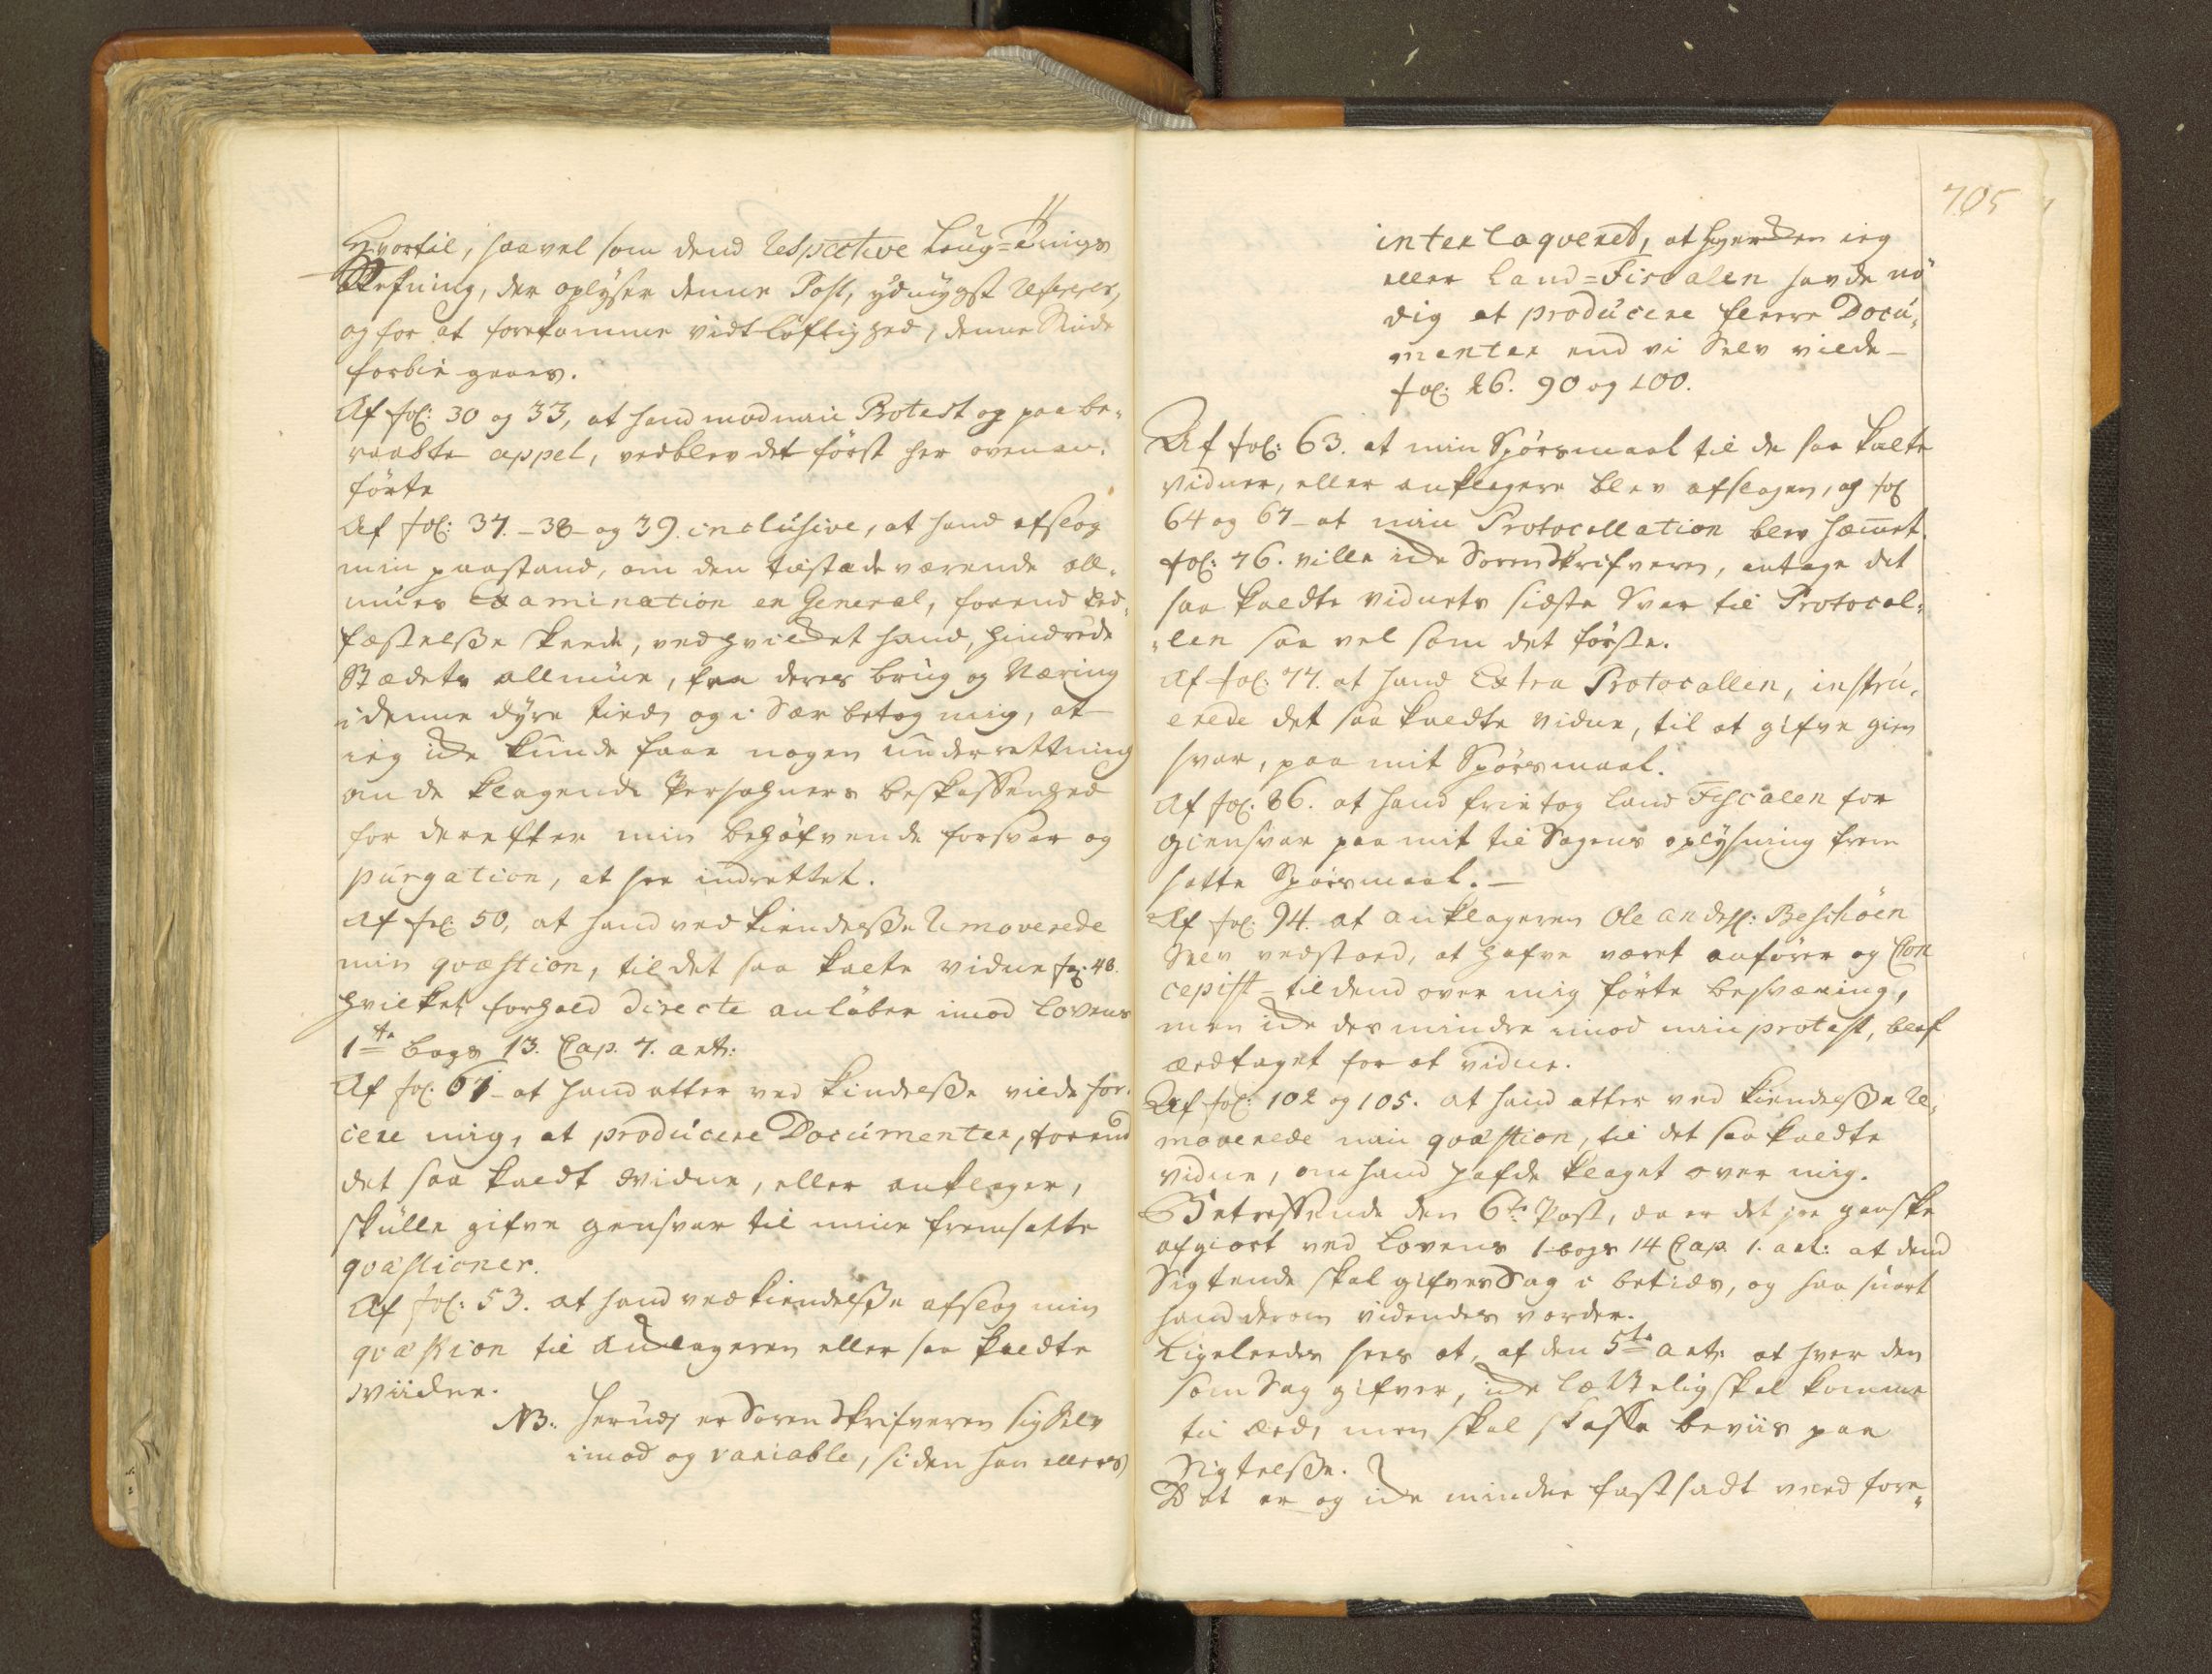 Hvortil, saavel som dend Respective Laug-Tings
Retning, der oplyser denne Post, ydmygst Refereres,
og for at forekomme vidtløftighed, denne Stude
forbie gaaes.
Af fol: 30 og 33, at hand mod min Protest og paabe-
raabte appel, vedblev det först her ovenan-
förte
Af fol: 37.-38- og 39. inclusive, at hand afslog
min paastand, om den tilstædeværende all-
mues Examination en General, forend Eed-
fæstelsse skeede, ved hvilcket hand, hindrede
Stædets allmue, fra deres brug og Næring
i denne dyre tied, og i Sær betog mig, at
ieg icke kunde faae nogen underrettning
om de klagende Persohners beskaffenhed
for derefter min behöfvende forsvar og
purgation, at see indrettet.
Af fol: 50, at hand ved kiendelsse Removerede
min qvæstion, til det saa kalte vidne fol: 48.
hvilket forhold directe anlöber imod Lovens
1ste bogs 13. Cap. 7. art:
Af fol: 67- at hand atter ved kindelsse vilde for-
cere mig, at producere Documenter, forend
det saa kaldt vidne, eller anklager,
skulle gifve gensvar til mine fremsatte
qvæstioner.
Af fol: 53. at hand ved kiendelsse afslog min
qvæstion til Anclageren eller saa kaldte
viidne.
NB: herudj er Sorenskrifveren sig Selv
imod og variable, siden han ellers
705
interlaqveret, at hvercken ieg
eller Land-Fiscalen havde nö
dig at producere fleere Docu-
menter end vi Selv vilde-
fol: 26. 90 og 100.
Af fol: 63. at min Spörsmaal til de saa kalte
Vidner, eller anklagere blev afslagen, og fol
64 og 67- at min Protocollation blev hæmet.
fol: 76. ville icke Sorenskrifveren, antage det
saa kaldte vidnets sidste Svar til Protocol-
len saa vel som det förste.
Af fol: 77. at hand Extra Protocollen, instru-
erede det saa kaldte vidne, til at gifve gien
svar, paa mit Spörsmaal.
Af fol: 86. at hand frietog Land Fiscalen for
giensvar paa mit til Sagens oplysning frem
satte Spörsmaal.-
Af fol: 94. at anklageren Ole Andsf: Beschöen
Selv vedstoed, at hafve været anförer og Con
cepist- til dend over mig förte besværing,
men icke des mindre imod min protest, blef
æedtaget for at vidne.
Af fol: 102 og 105. at hand atter ved kiendelsse Re-
moverede min qvæstion, til det saa kaldte
vidne, om hand hafde klaget over mig.
Betreffende den 6te Post, da er det jo gandske
afgiort ved Lovens 1 bogs 14 Cap. 1. art: at dend
Sigtende skal gifves Sag i betids, og saa snart
hand derom videndes vorder.
Ligeleedes sees at, af den 5te art: at hver den
som Sag gifver, icke lættelig skal komme
til Æed, men skal skaffe beviis paa
Sigtelsse.
Det er og icke mindre fastsadt med fore-